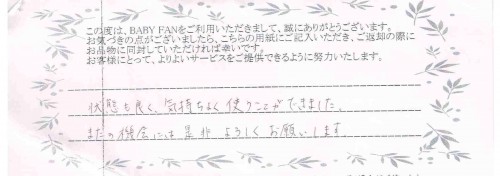 この度は、BABY FANをご利用いただきまして、誠にありがとうございます。
お気づきの点がございましたら、こちらの用紙にご記入いただき、ご返却の際に
お品物に同封していただければ幸いです。
お客様にとって、よりよいサービスをご提供できるように努力いたします。
状態も良く、気持ちよく使うことができました。
またの機会には是非よろしくお願いします